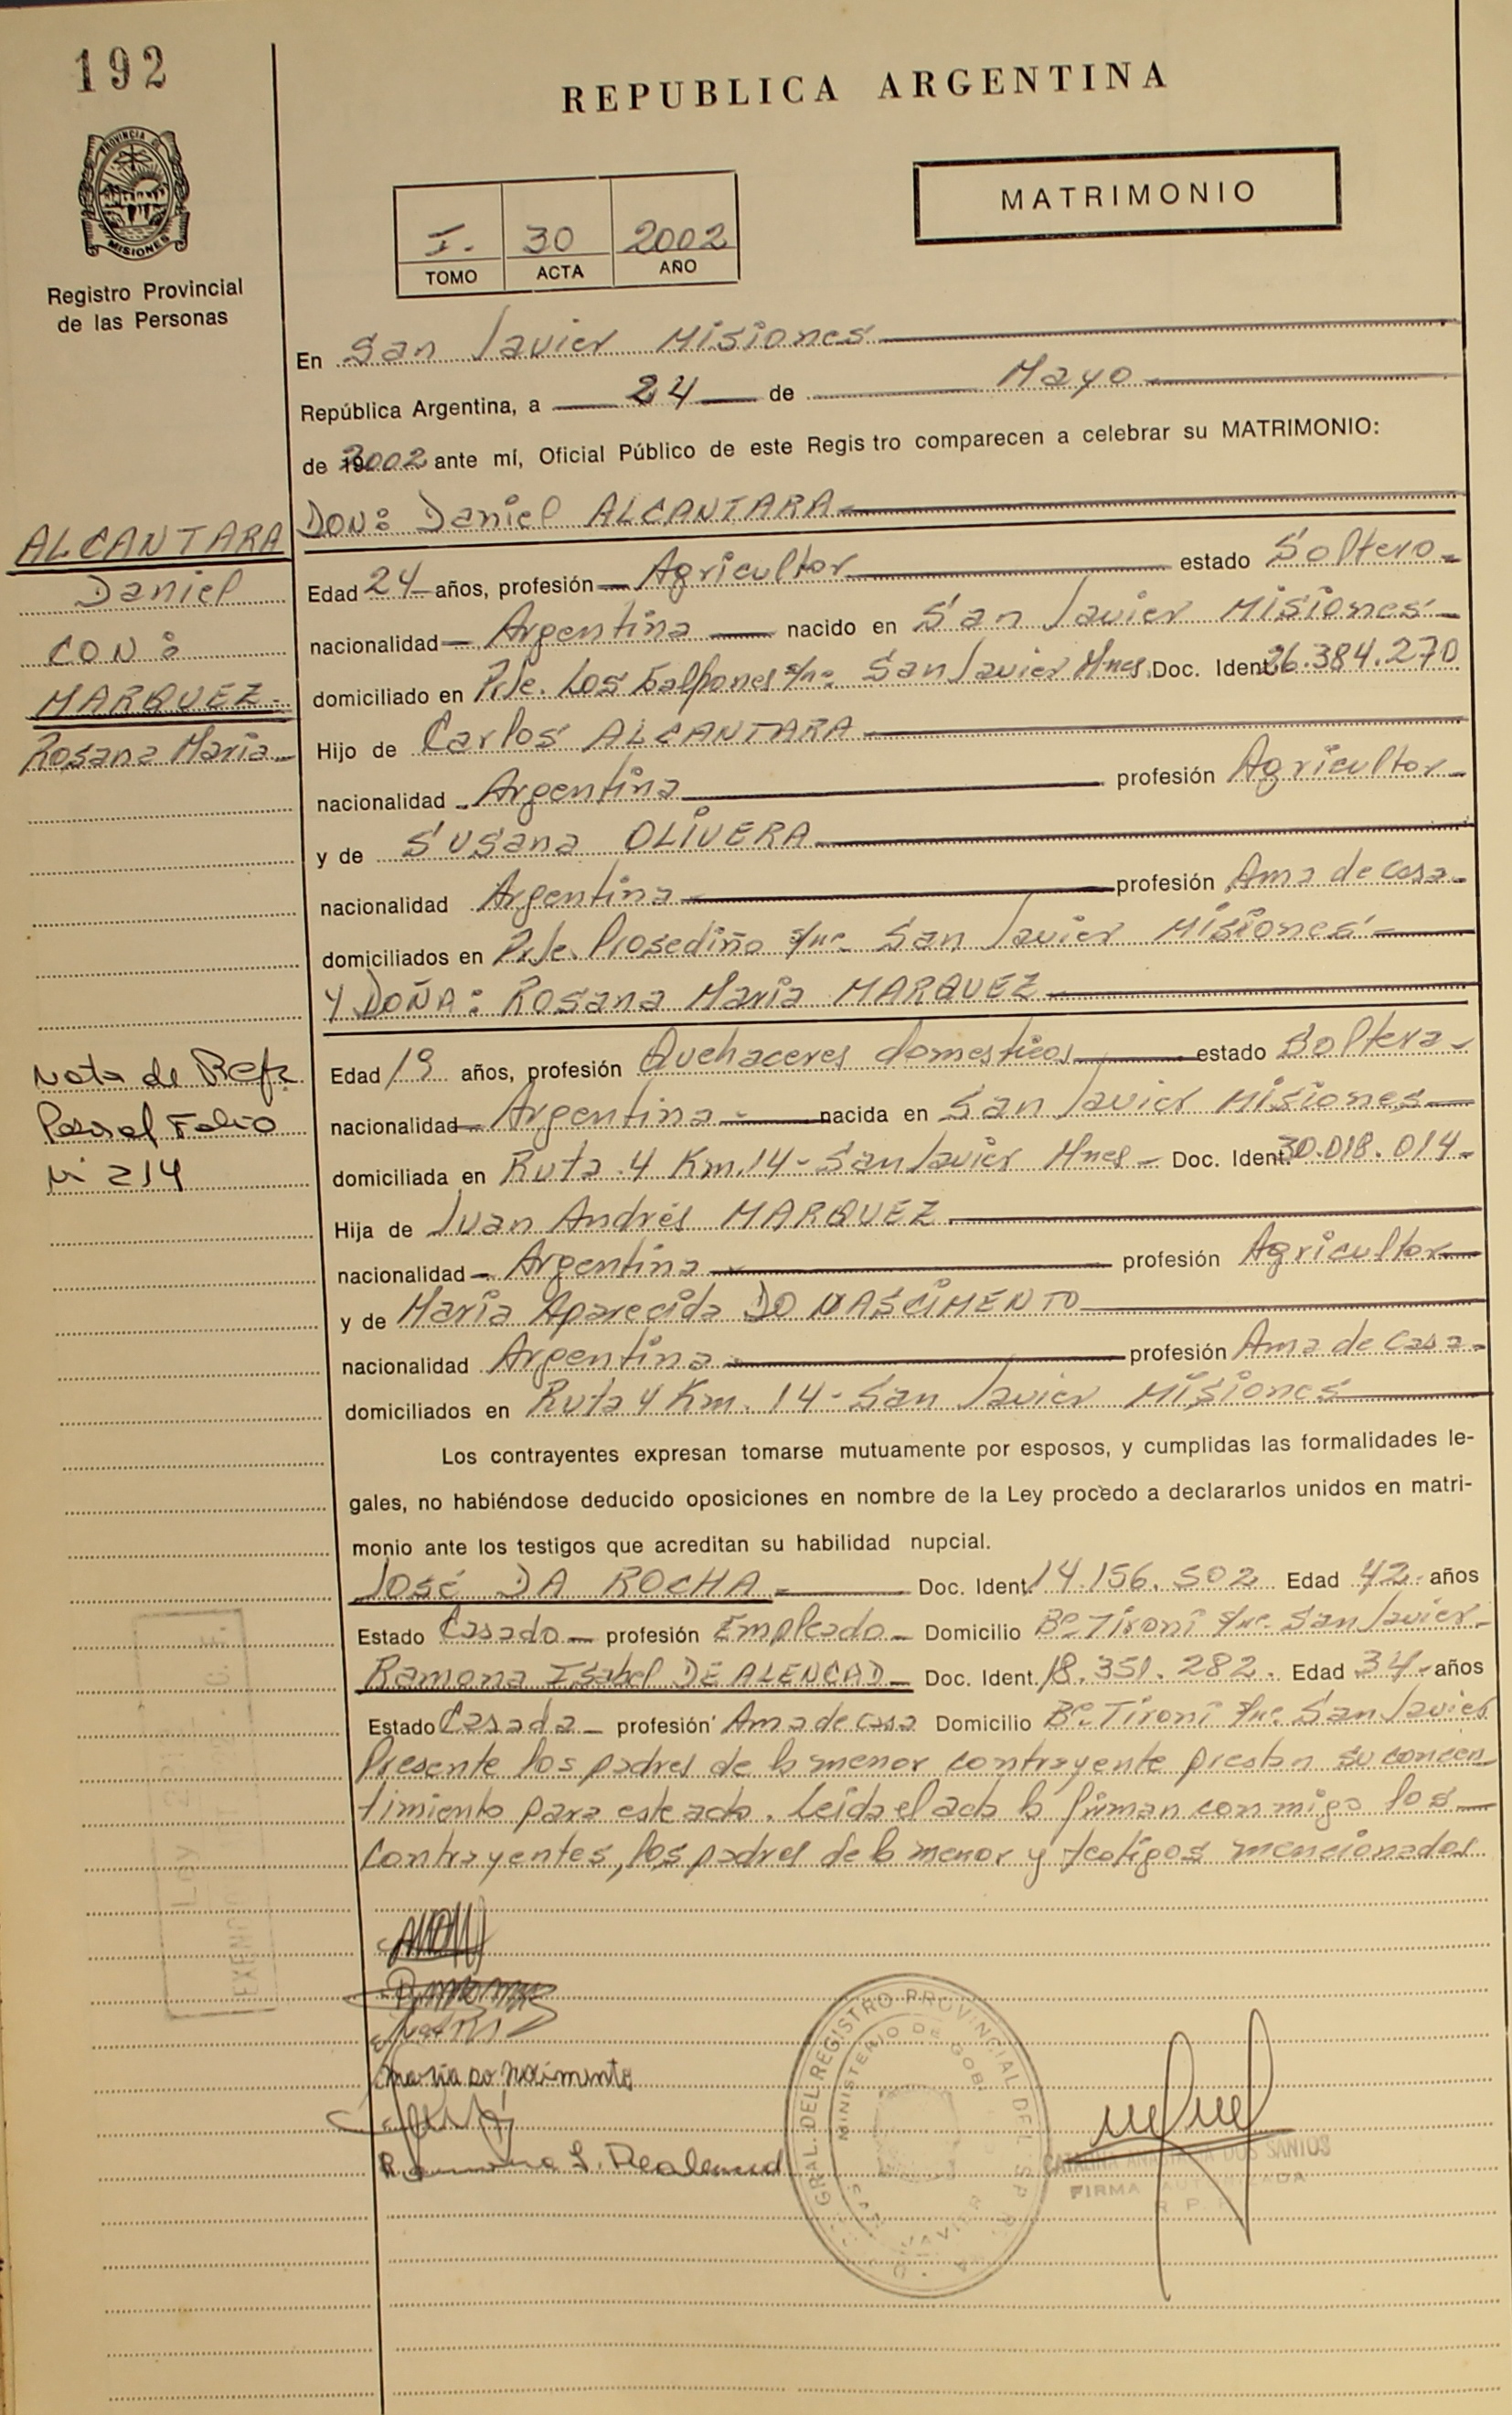 192
REPUBLICA ARGENTINA
PROVINCIA DE
MISIONES
Registro Provincial
de las Personas
MATRIMONIO
I. 30 2002
TOMO ACTA AÑO
En San Javier Misiones
República Argentina, a 24 de Mayo
de 2002 ante mí, Oficial Público de este Registro comparecen a celebrar su MATRIMONIO:
ALCANTARA
Daniel
CON:
MARQUEZ
Rosana María
DON: Daniel ALCANTARA
Edad 24 años, profesión Agricultor estado Soltero
nacionalidad Argentina nacido en San Javier Misiones
domiciliado en Pje. Los Galpones s/nº San Javier Mnes. Doc. Ident. 26.384.270
Hijo de Carlos ALCANTARA
nacionalidad Argentina profesión Agricultor
y de Susana OLIVERA
nacionalidad Argentina profesión Ama de casa
domiciliados en Pje. s/nº San Javier Misiones
Y DOÑA: Rosana María MARQUEZ
Nota de Refª
Pasa al Folio
Nº 214
Edad 19 años, profesión Quehaceres domesticos estado Soltera
nacionalidad Argentina nacida en San Javier Misiones
domiciliada en Ruta 4 Km. 14 - San Javier Mnes - Doc. Ident. 30.018.014
Hija de Juan Andrés MARQUEZ
nacionalidad Argentina profesión Agricultor
y de María Aparecida DO NASCIMENTO
nacionalidad Argentina profesión Ama de casa
domiciliados en Ruta 4 Km. 14 - San Javier Misiones
Los contrayentes expresan tomarse mutuamente por esposos, y cumplidas las formalidades le-
gales, no habiéndose deducido oposiciones en nombre de la Ley procedo a declararlos unidos en matri-
monio ante los testigos que acreditan su habilidad nupcial.
José DA ROCHA Doc. Ident. 14.156.502 Edad 42 años
Estado Casado profesión Empleado Domicilio Bº Tironi s/nº San Javier
Ramona Isabel DE ALENCAD Doc. Ident. 18.351.282. Edad 34 años
Estado Casada profesión Ama de casa Domicilio Bº Tironi s/nº San Javier
Presente los padres de la menor contrayente prestan su concen-
timiento para este acto. Leída el acta la firman conmigo los
contrayentes, los padres de la menor y testigos mencionados
maria do nacimento
Ramona I. Dealencad
GRAL. DEL REGISTRO PROVINCIAL DE
MINISTERIO DE GOB.
JAVIER
DOS SANTOS
FIRMA AUTORIZADA
R. P. P.
Ley